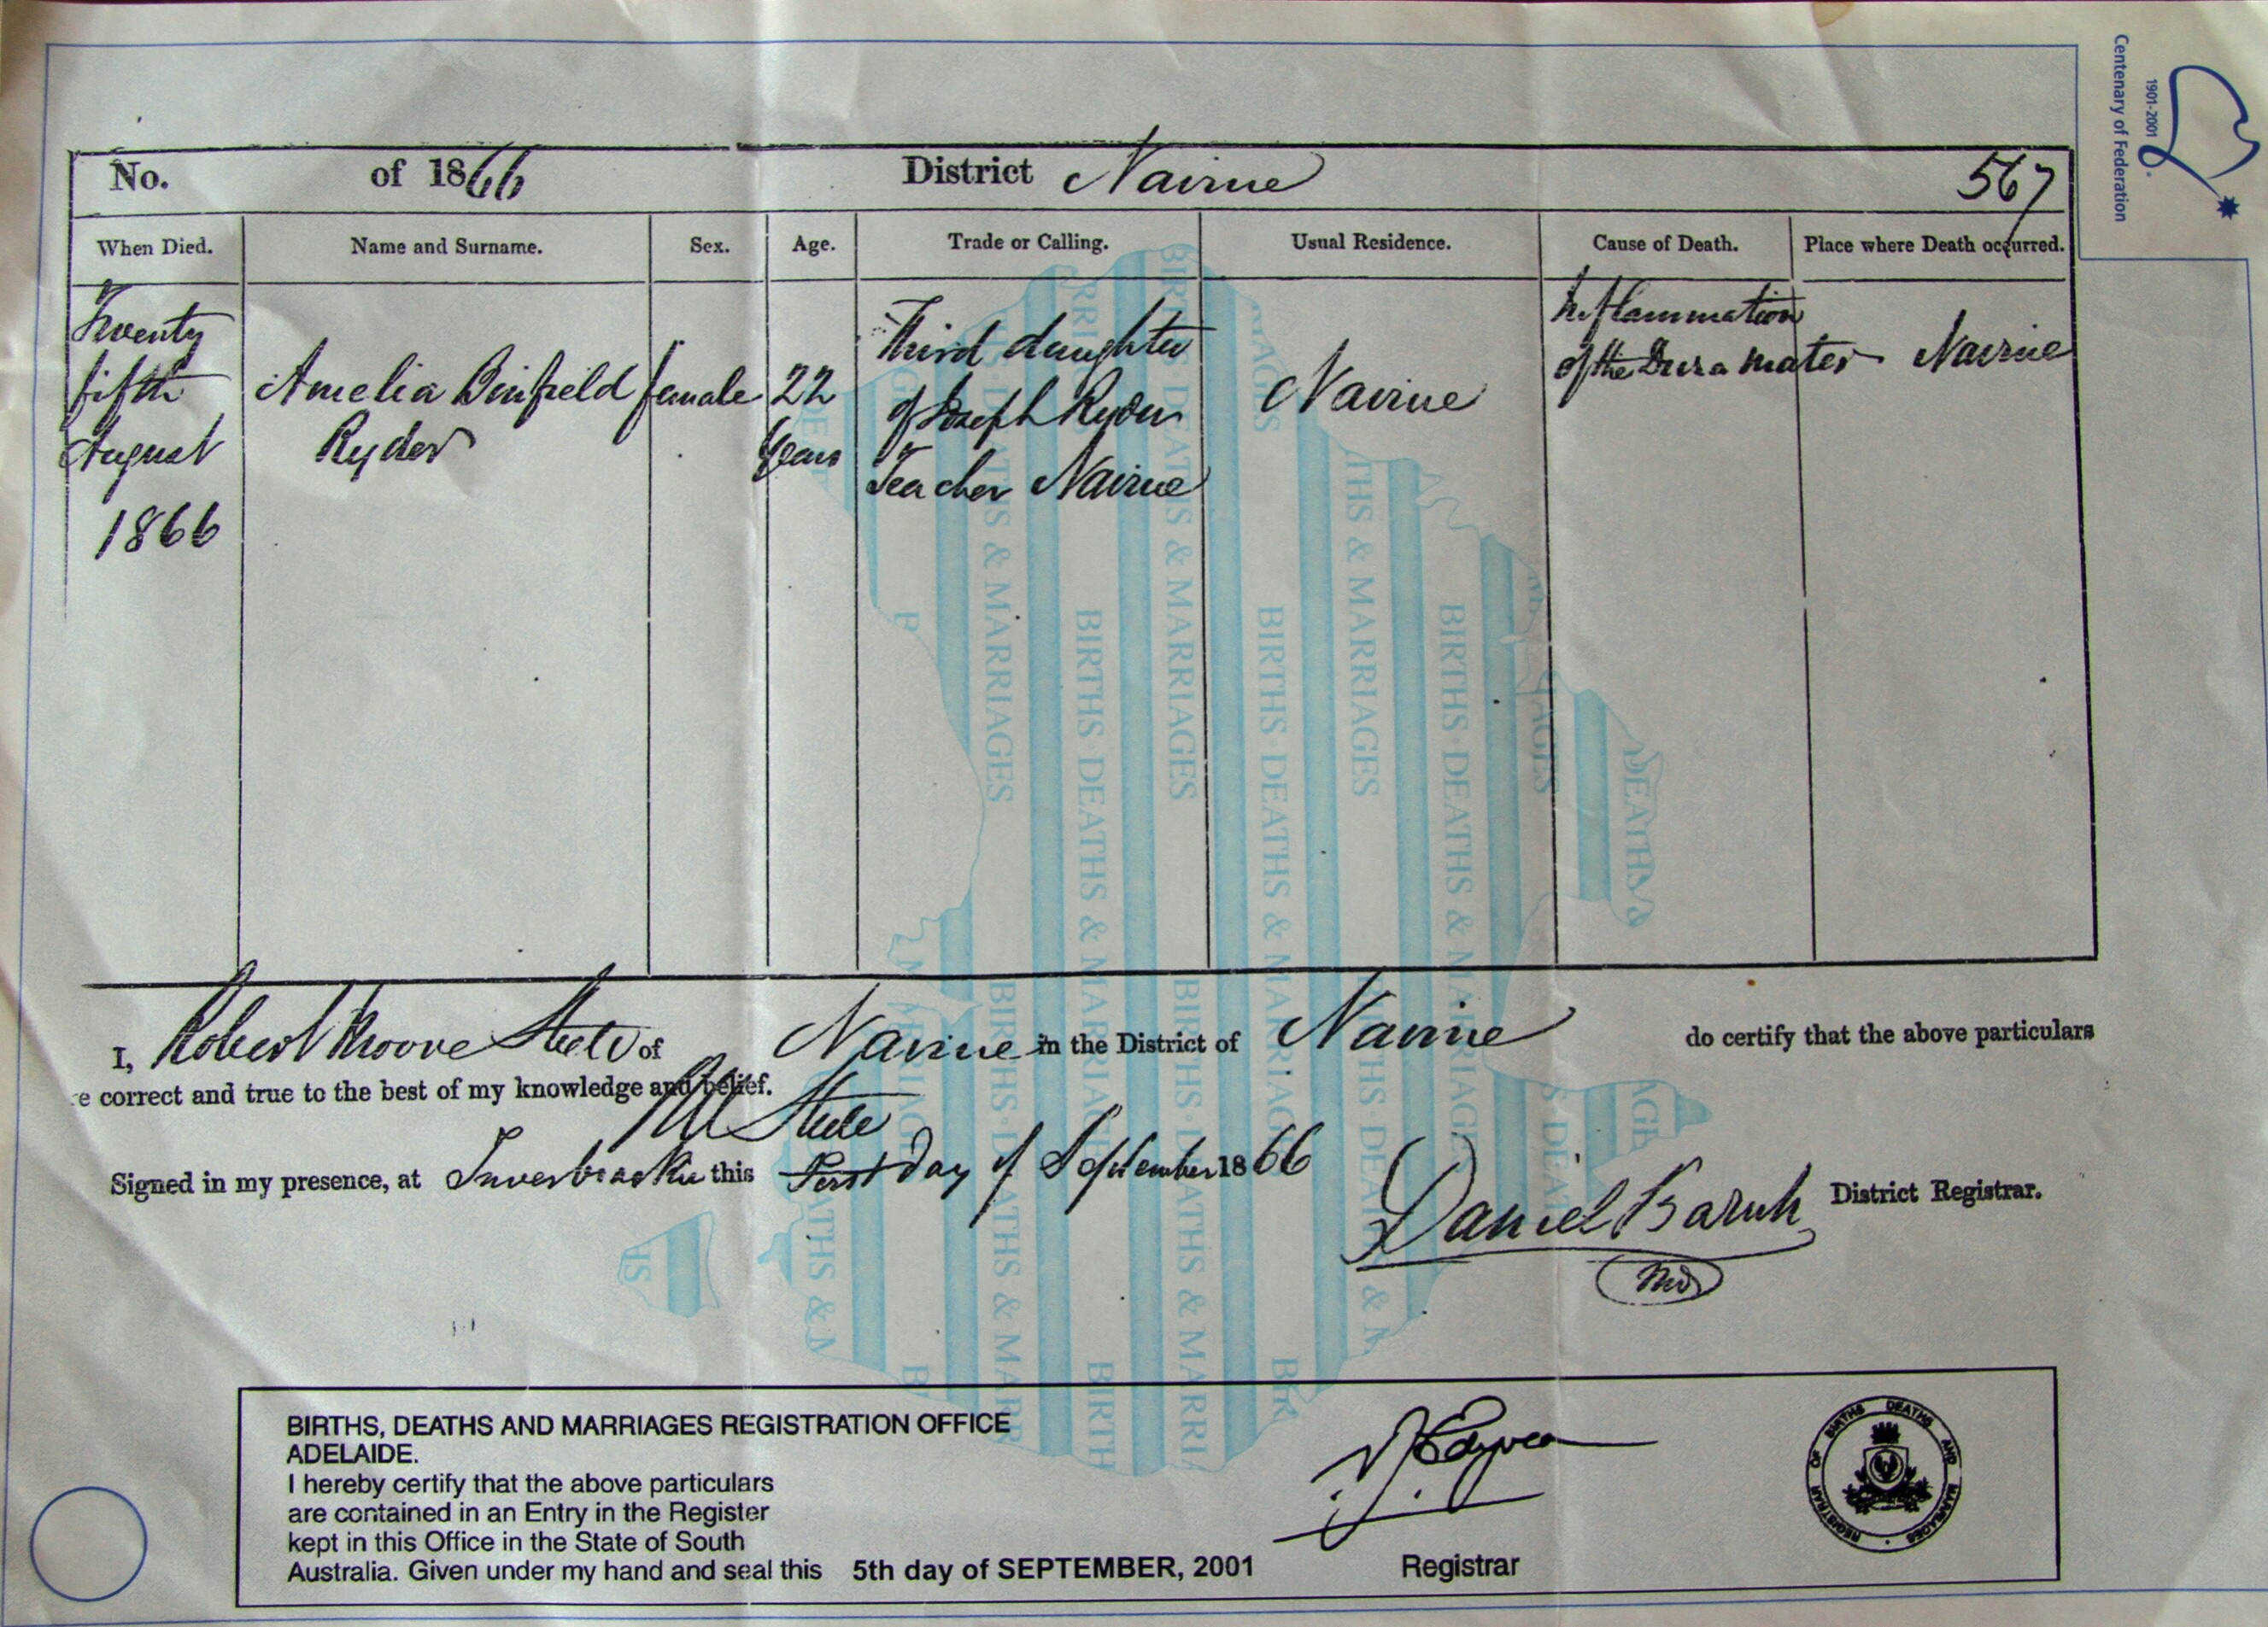 Centenary of Federation
1901-2001
No. of 1866 District Nairne 567
When Died. Name and Surname. Sex. Age. Trade or Calling. Usual Residence. Cause of Death. Place where Death occurred.
Twenty
fifth
August
1866
Amelia Binfield
Ryder
female
22
Years
Third daughter
of Joseph Ryder
Teacher Nairne
Nairne
Inflammation
of the Dura mater
Nairne
I, Robert Moore Steele of Nairne in the District of Nairne do certify that the above particulars
re correct and true to the best of my knowledge and belief.
RM Steele
Signed in my presence, at Inverbrackie this First day of September 1866
Daniel Baruh District Registrar.
BIRTHS, DEATHS AND MARRIAGES REGISTRATION OFFICE
ADELAIDE.
I hereby certify that the above particulars
are contained in an Entry in the Register
kept in this Office in the State of South
Australia. Given under my hand and seal this 5th day of SEPTEMBER, 2001
Registrar
REGISTRAR OF BIRTHS DEATHS AND MARRIAGES
BIRTHS DEATHS & MARRIAGES